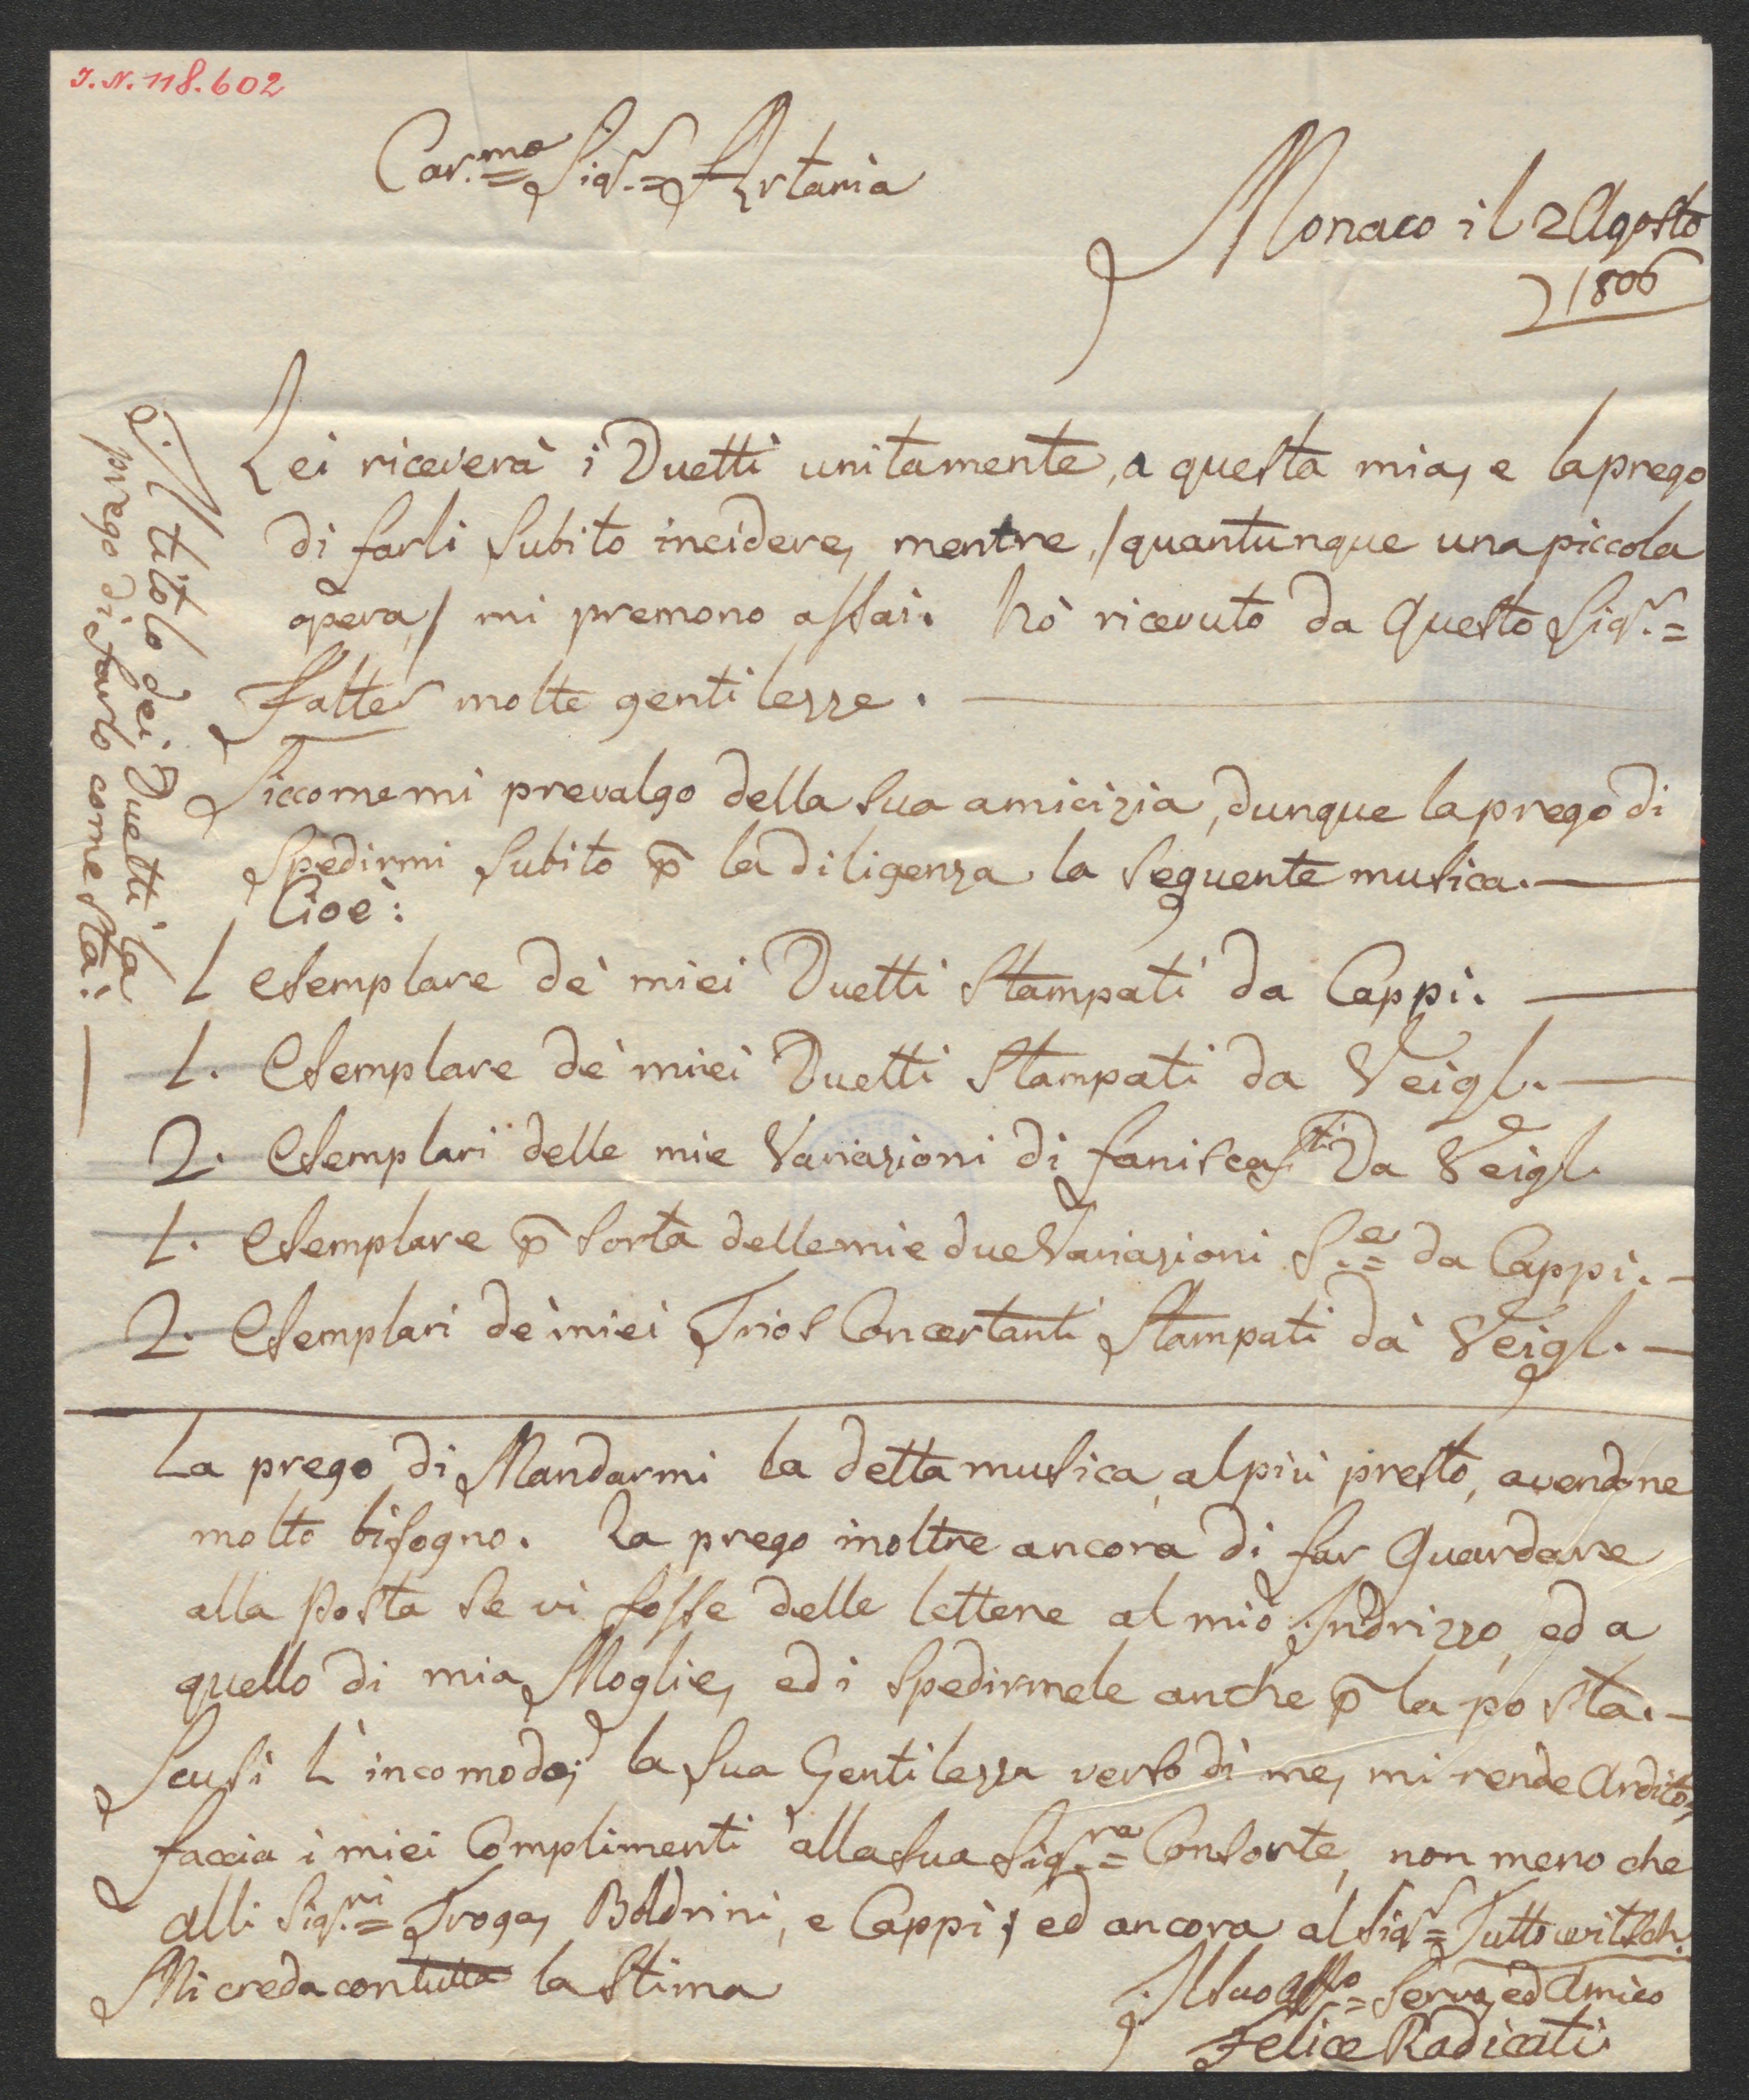 J. N. 118.602
Car.mo Sigr. Artaria
Monaco il 2 Agosto
1806
Lei riceverà i Duetti unitamente, a questa mia, e la prego
di farli subito incidere, mentre /quantunque una piccola
opera/ mi premono assai. hò ricevuto da questo Sigr.
falter molte gentilezze.
Siccome mi prevalgo della sua amicizia, dunque la prego di
spedirmi subito p la diligenza la seguente musica.
Cioè:
1 esemplare de' miei Duetti stampati da Cappi.
1. esemplare de' miei Duetti stampati da Veigl.
2. esemplari delle mie Variazioni di faniscas da Veigl.
1. esemplare p sorta delle mie due Variazioni S.e da Cappi.
2. esemplari de' miei Trios Concertanti stampati da Veigl.
La prego di Mandarmi la detta musica, al più presto, avendone
molto bisogno. La prego inoltre ancora di far guardare
alla Posta se vi fosse delle lettere al mio Indrizzo, ed a
quello di mia Moglie, ed i spedirmele anche p la posta.
Scusi l'incomodo; la sua Gentilezza verso di me, mi rende ardito,
faccia i miei Complimenti alla sua Sig.ra Consorte, non meno che
alli Sigr.ri Troga, Boldrini, e Cappi; ed ancora al Sigr.
Mi creda con tutta la stima
Il suo Affo. Servo, ed Amico
Felice Radicati
Il titolo dei Duetti, la
prego di farlo come stà: